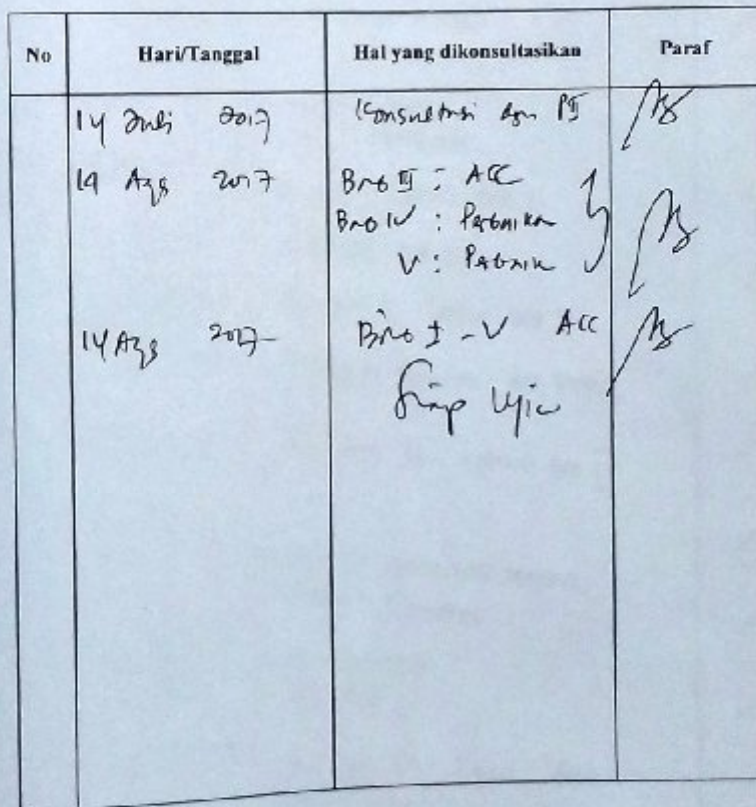 No Hari/Tanggal Hal yang dikonsultasikan Paraf
14 Juli 2017 Konsultasi dgn PII
14 Ags 2017 Bab III : ACC
Bab IV : Perbaikan
V : Perbaik
14 Ags 2017 Bab I - V ACC
Siap Ujian